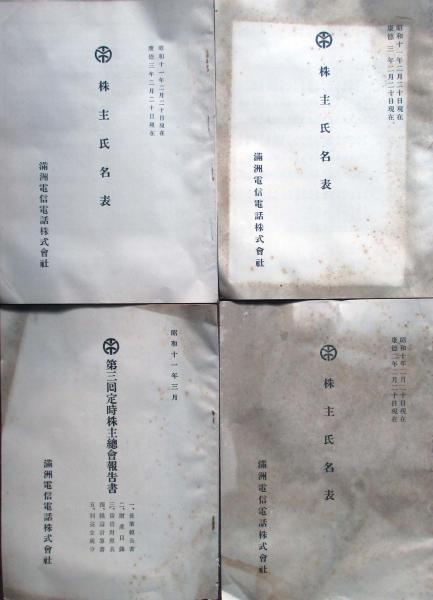 昭和十一年二月二十日現在
康徳三年二月二十日現在
株主氏名表
滿洲電信電話株式會社
昭和十一年二月二十日現在
康徳三年二月二十日現在
株主氏名表
滿洲電信電話株式會社
昭和十一年三月
第三回定時株主總會報告書
一、營業報告書
二、財産目錄
三、貸借對照表
四、損益計算書
五、利益金處分
滿洲電信電話株式會社
昭和十年二月二十日現在
康徳二年二月二十日現在
株主氏名表
滿洲電信電話株式會社